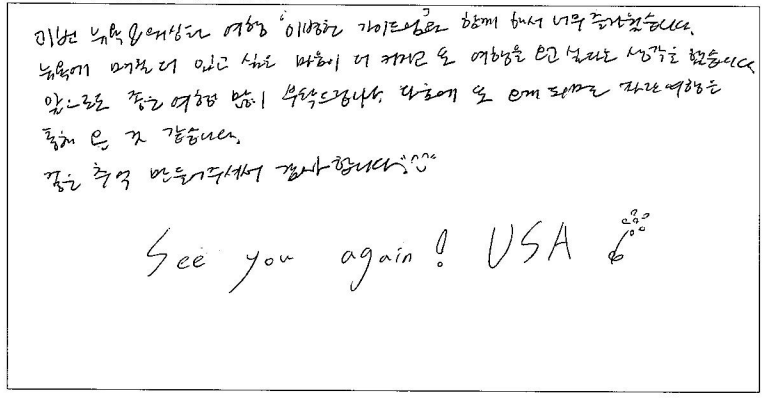 이번 뉴욕&워싱턴 여행 "이병헌 가이드님"과 함께 해서 너무 즐거웠습니다.
뉴욕에 며칠 더 있고 싶은 마음이 더 커지고 또 여행을 오고 싶다는 생각을 했습니다
앞으로도 좋은 여행 많이 부탁드립니다. 다음에 또 오게 되면 여행은
통해 올 것 같습니다.
좋은 추억 만들어주셔서 감사합니다
See you again! USA